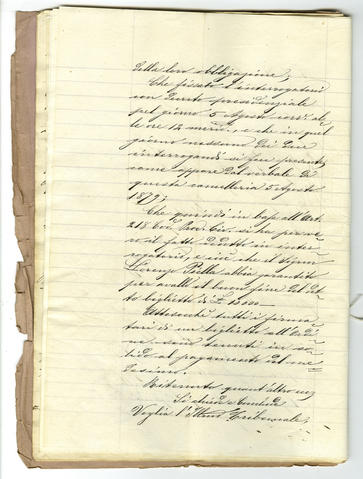 della loro obbligazione;
Che fissato l'interrogatorio
con Decreto presidenziale
pel giorno 5 Agosto corso al-
le ore 12 merid., e che in quel
giorno nessuno dei Due
interrogandi si fece presente
come appare dal verbale di
questa cancelleria 5 Agosto
1879;
Che quindi in base all'Art.
218 Cod. Proc. Civ. si ha per ve-
ro il fatto dedotto in inter-
rogatorio, e cioè che il Signor
Lorenzo Bella abbia garantito
per avallo il buon fine del det-
to biglietto di £ 15000 -
Attesochè tutti i firma-
tari di un biglietto all'Ordi-
ne sono tenuti in so-
lido al pagamento del me-
desimo.
Ritenuto quant'altro
Si chiede e conclude
Voglia l'Illmo Tribunale,